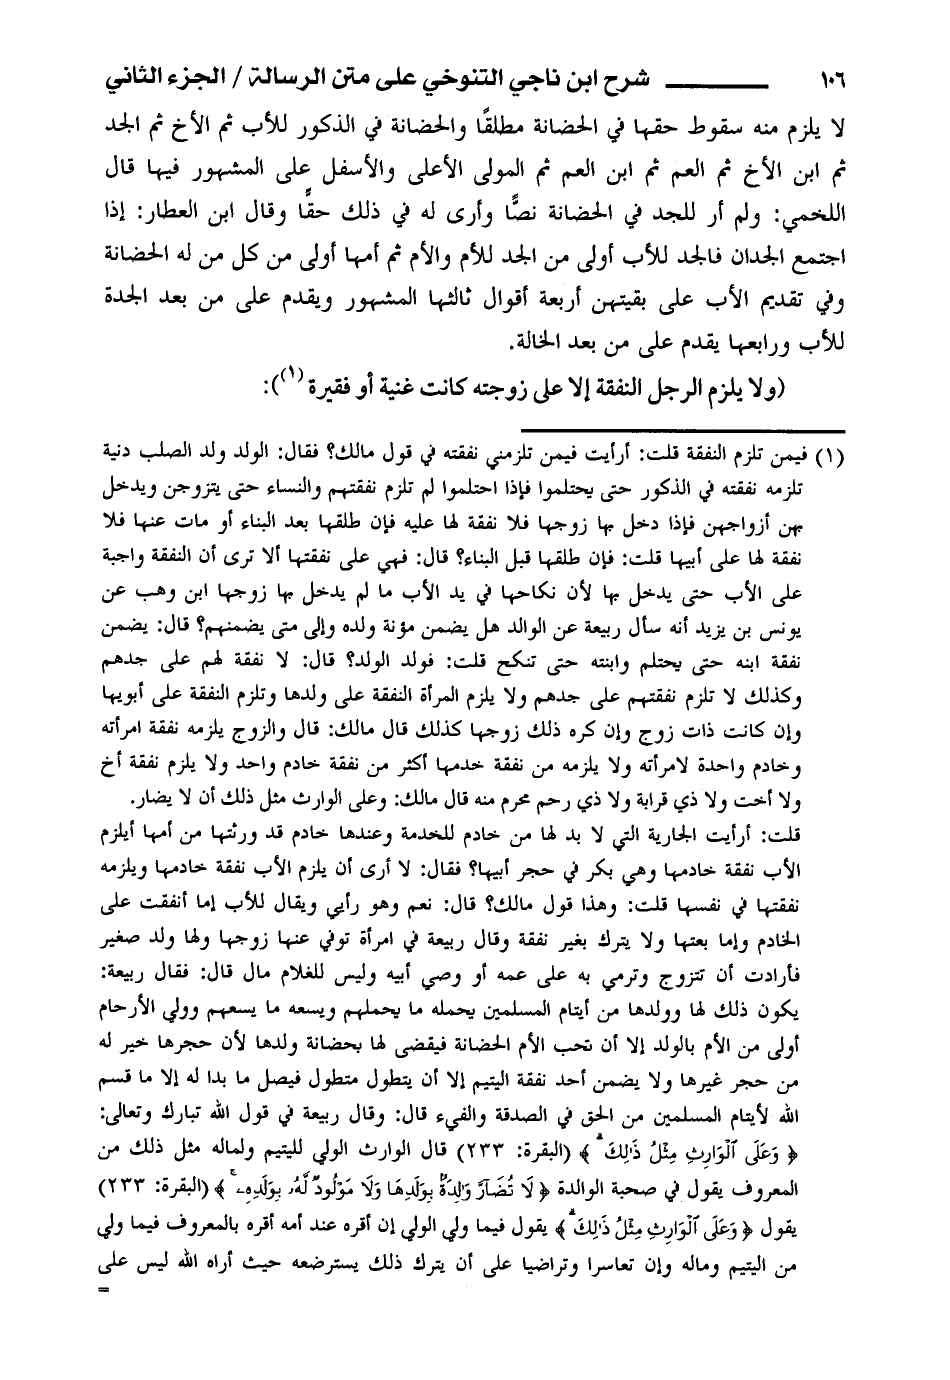 ١٠٦ ــــــــــ شرح ابن ناجي التنوخي على متن الرسالة / الجزء الثاني
لا يلزم منه سقوط حقها في الحضانة مطلقًا والحضانة في الذكور للأب ثم الأخ ثم الجد
ثم ابن الأخ ثم العم ثم ابن العم ثم المولى الأعلى والأسفل على المشهور فيها قال
اللخمي: ولم أر للجد في الحضانة نصًّا وأرى له في ذلك حقًّا وقال ابن العطار: إذا
اجتمع الجدان فالجد للأب أولى من الجد للأم والأم ثم أمها أولى من كل من له الحضانة
وفي تقديم الأب على بقيتهن أربعة أقوال ثالثها المشهور ويقدم على من بعد الجدة
للأب ورابعها يقدم على من بعد الخالة.
(ولا يلزم الرجل النفقة إلا على زوجته كانت غنية أو فقيرة (١)):
(١) فيمن تلزم النفقة قلت: أرأيت فيمن تلزمني نفقته في قول مالك؟ فقال: الولد ولد الصلب دنية
تلزمه نفقته في الذكور حتى يحتلموا فإذا احتلموا لم تلزم نفقتهم والنساء حتى يتزوجن ويدخل
بهن أزواجهن فإذا دخل بها زوجها فلا نفقة لها عليه فإن طلقها بعد البناء أو مات عنها فلا
نفقة لها على أبيها قلت: فإن طلقها قبل البناء؟ قال: فهي على نفقتها ألا ترى أن النفقة واجبة
على الأب حتى يدخل بها لأن نكاحها في يد الأب ما لم يدخل بها زوجها ابن وهب عن
يونس بن يزيد أنه سأل ربيعة عن الوالد هل يضمن مؤنة ولده وإلى متى يضمنهم؟ قال: يضمن
نفقة ابنه حتى يحتلم وابنته حتى تنكح قلت: فولد الولد؟ قال: لا نفقة لهم على جدهم
وكذلك لا تلزم نفقتهم على جدهم ولا يلزم المرأة النفقة على ولدها وتلزم النفقة على أبويها
وإن كانت ذات زوج وإن كره ذلك زوجها كذلك قال مالك: قال والزوج يلزمه نفقة امرأته
وخادم واحدة لامرأته ولا يلزمه من نفقة خدمها أكثر من نفقة خادم واحد ولا يلزم نفقة أخ
ولا أخت ولا ذي قرابة ولا ذي رحم محرم منه قال مالك: وعلى الوارث مثل ذلك أن لا يضار.
قلت: أرأيت الجارية التي لا بد لها من خادم للخدمة وعندها خادم قد ورثتها من أمها أيلزم
الأب نفقة خادمها وهي بكر في حجر أبيها؟ فقال: لا أرى أن يلزم الأب نفقة خادمها ويلزمه
نفقتها في نفسها قلت: وهذا قول مالك؟ قال: نعم وهو رأيي ويقال للأب إما أنفقت على
الخادم وإما بعتها ولا يترك بغير نفقة وقال ربيعة في امرأة توفي عنها زوجها ولها ولد صغير
فأرادت أن تتزوج وترمي به على عمه أو وصي أبيه وليس للغلام مال قال: فقال ربيعة:
يكون ذلك لها وولدها من أيتام المسلمين يحمله ما يحملهم ويسعه ما يسعهم وولي الأرحام
أولى من الأم بالولد إلا أن تحب الأم الحضانة فيقضى لها بحضانة ولدها لأن حجرها خير له
من حجر غيرها ولا يضمن أحد نفقة اليتيم إلا أن يتطول متطول فيصل ما بدا له إلا ما قسم
الله لأيتام المسلمين من الحق في الصدقة والفيء قال: وقال ربيعة في قول الله تبارك وتعالى:
﴿ وَعَلَى ٱلْوَارِثِ مِثْلُ ذَٰلِكَ ۗ ﴾ (البقرة: ٢٣٣) قال الوارث الولي لليتيم ولماله مثل ذلك من
المعروف يقول في صحبة الوالدة ﴿ لَا تُضَآرَّ وَٰلِدَةٌۢ بِوَلَدِهَا وَلَا مَوْلُودٌ لَّهُۥ بِوَلَدِهِۦ ۚ ﴾ (البقرة: ٢٣٣)
يقول ﴿ وَعَلَى ٱلْوَارِثِ مِثْلُ ذَٰلِكَ ۗ ﴾ يقول فيما ولي الولي إن أقره عند أمه أقره بالمعروف فيما ولي
من اليتيم وماله وإن تعاسرا وتراضيا على أن يترك ذلك يسترضعه حيث أراه الله ليس على
=